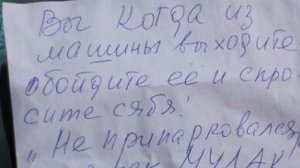 Вы когда из
машины выходите
обойдите её и спро
сите сябя!
"Не припарковался
как МУДАК